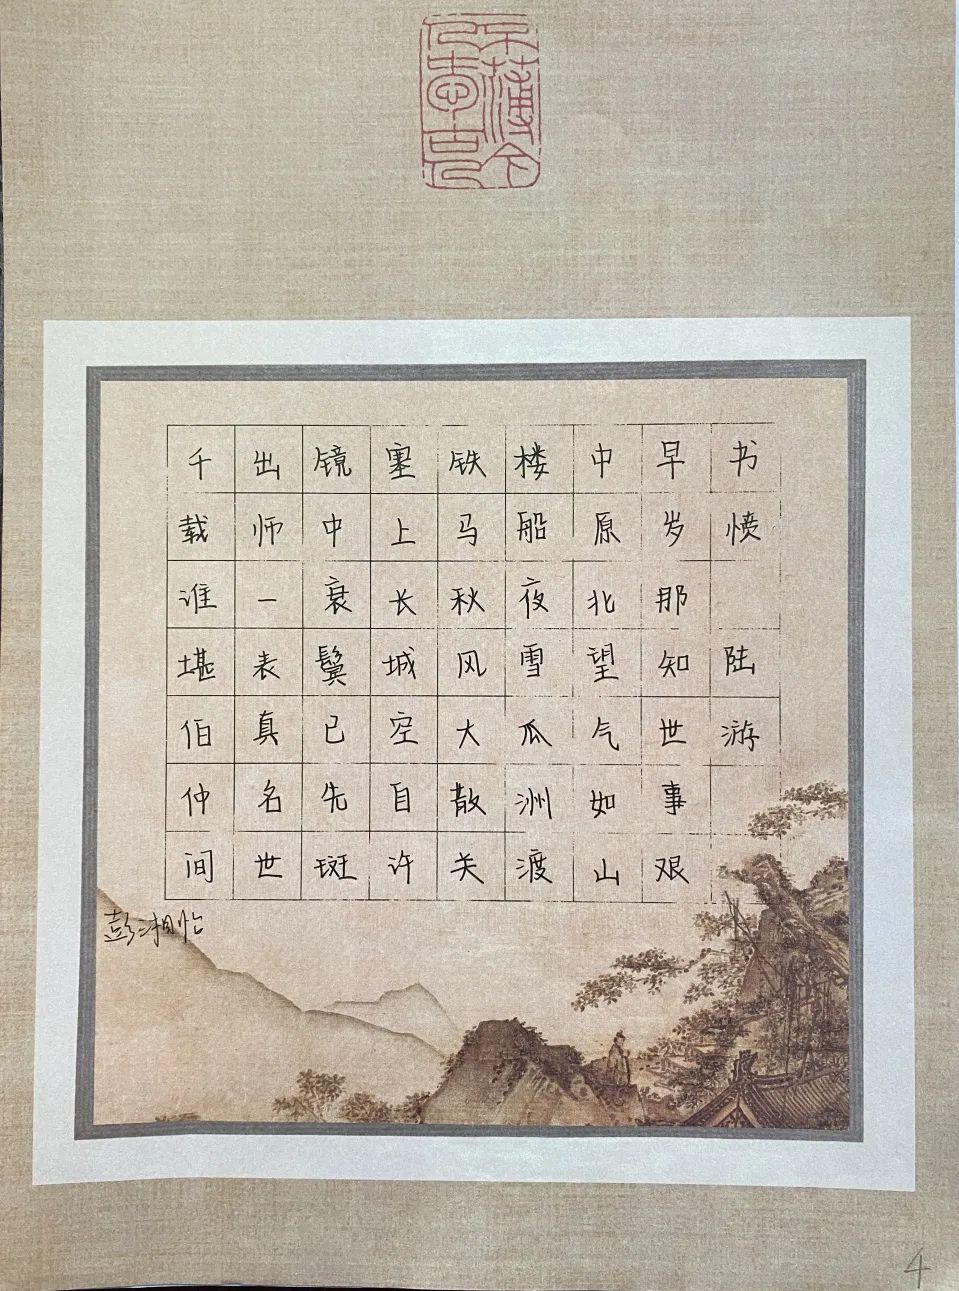 不薄今人愛古人
书愤 陆游
早岁那知世事艰
中原北望气如山
楼船夜雪瓜洲渡
铁马秋风大散关
塞上长城空自许
镜中衰鬓已先斑
出师一表真名世
千载谁堪伯仲间
彭湘怡
4